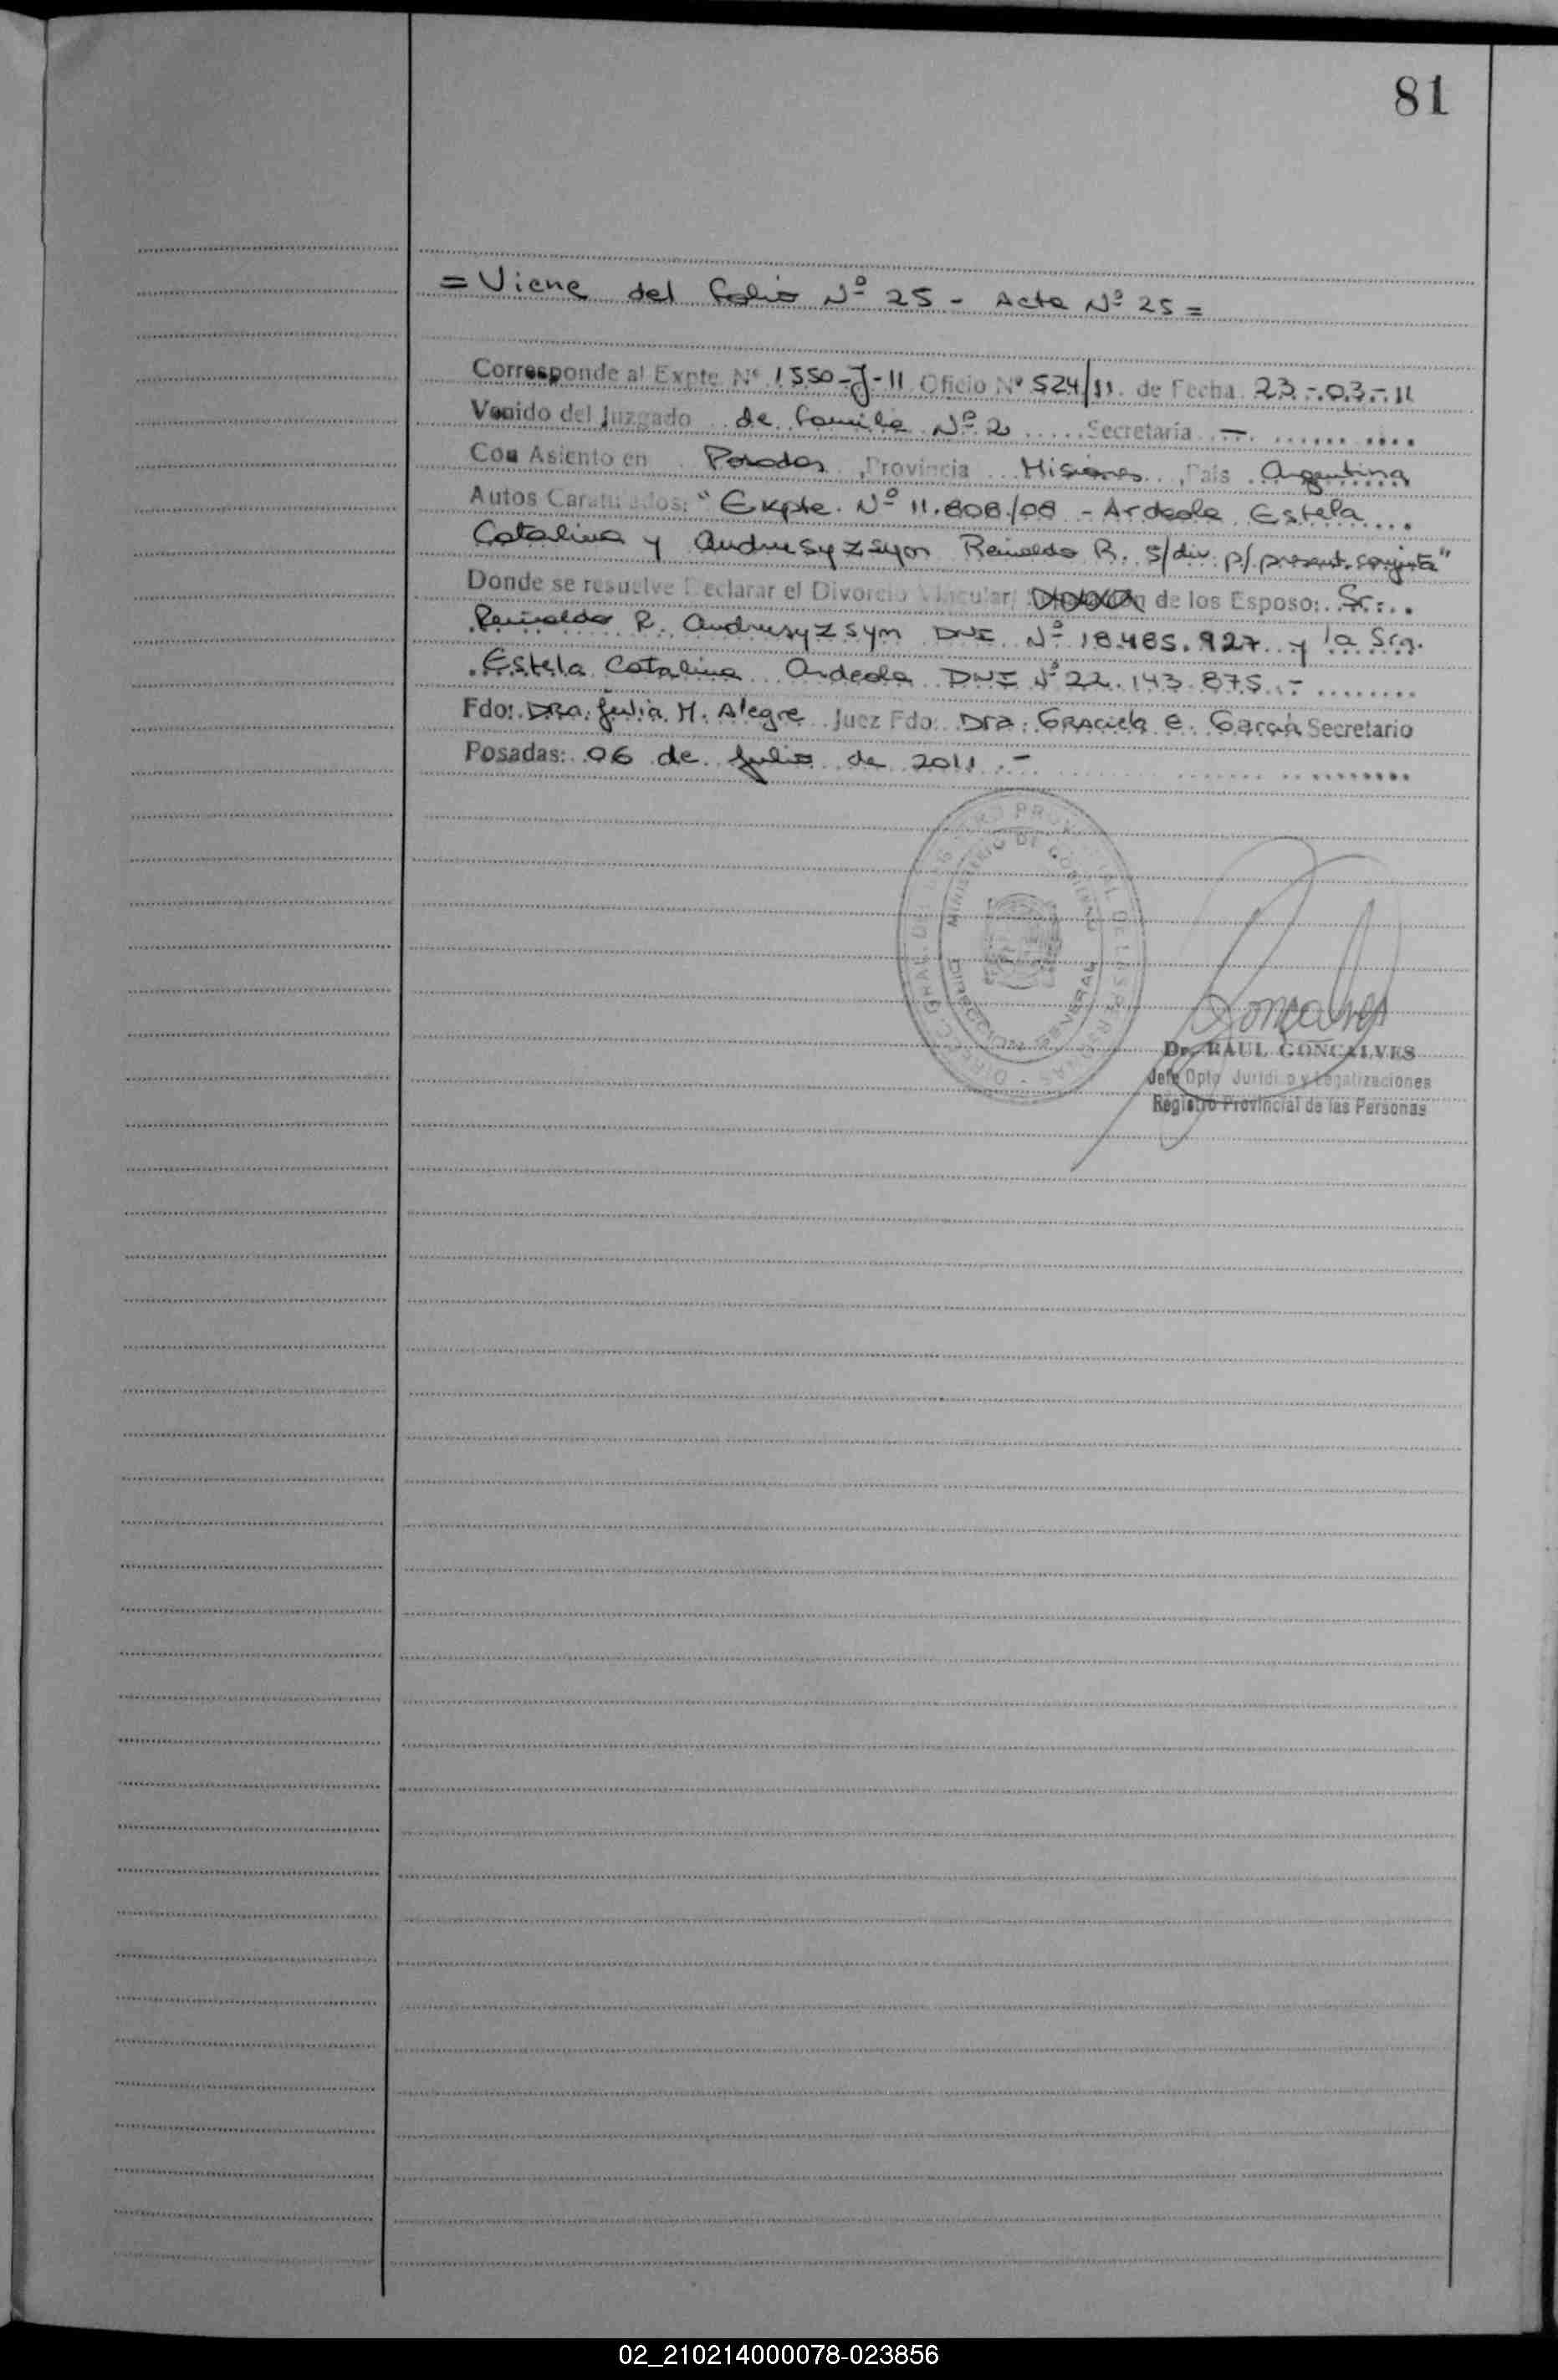 81
= Viene del folio Nº 25 - Acta Nº 25 =
Corresponde al Expte Nº 1550-J-11 Oficio Nº 524/11. de Fecha 23-.03.-11
Venido del Juzgado de familia Nº 2 ..... Secretaria .-. ..........
Con Asiento en Posadas, Provincia Misiones, País Argentina
Autos Caratulados: "Expte. Nº 11.808/08 - Ardeola Estela....
Catalina y Andrusyzsyn Reinaldo R. s/div. p/. present. conjta"
Donde se resuelve Declarar el Divorcio Vincular/ de los Esposo: Sr...
Reinaldo R. Andrusyzsyn DNI Nº 18.485.927.. y la Sra.
.Estela Catalina Ardeola DNI Nº 22.143.875.- ........
Fdo: DRA. Julia M. Alegre Juez Fdo: Dra. GRAciela E. García Secretario
Posadas: 06 de Julio de 2011.-
DIREC. GRAL. DEL REGISTRO PROVINCIAL DE LAS PERSONAS
MINISTERIO DE GOBIERNO
DIRECCION GENERAL
Goncalves
Dr. RAUL GONCALVES
Jefe Dpto Jurídico y Legalizaciones
Registro Provincial de las Personas
02_210214000078-023856